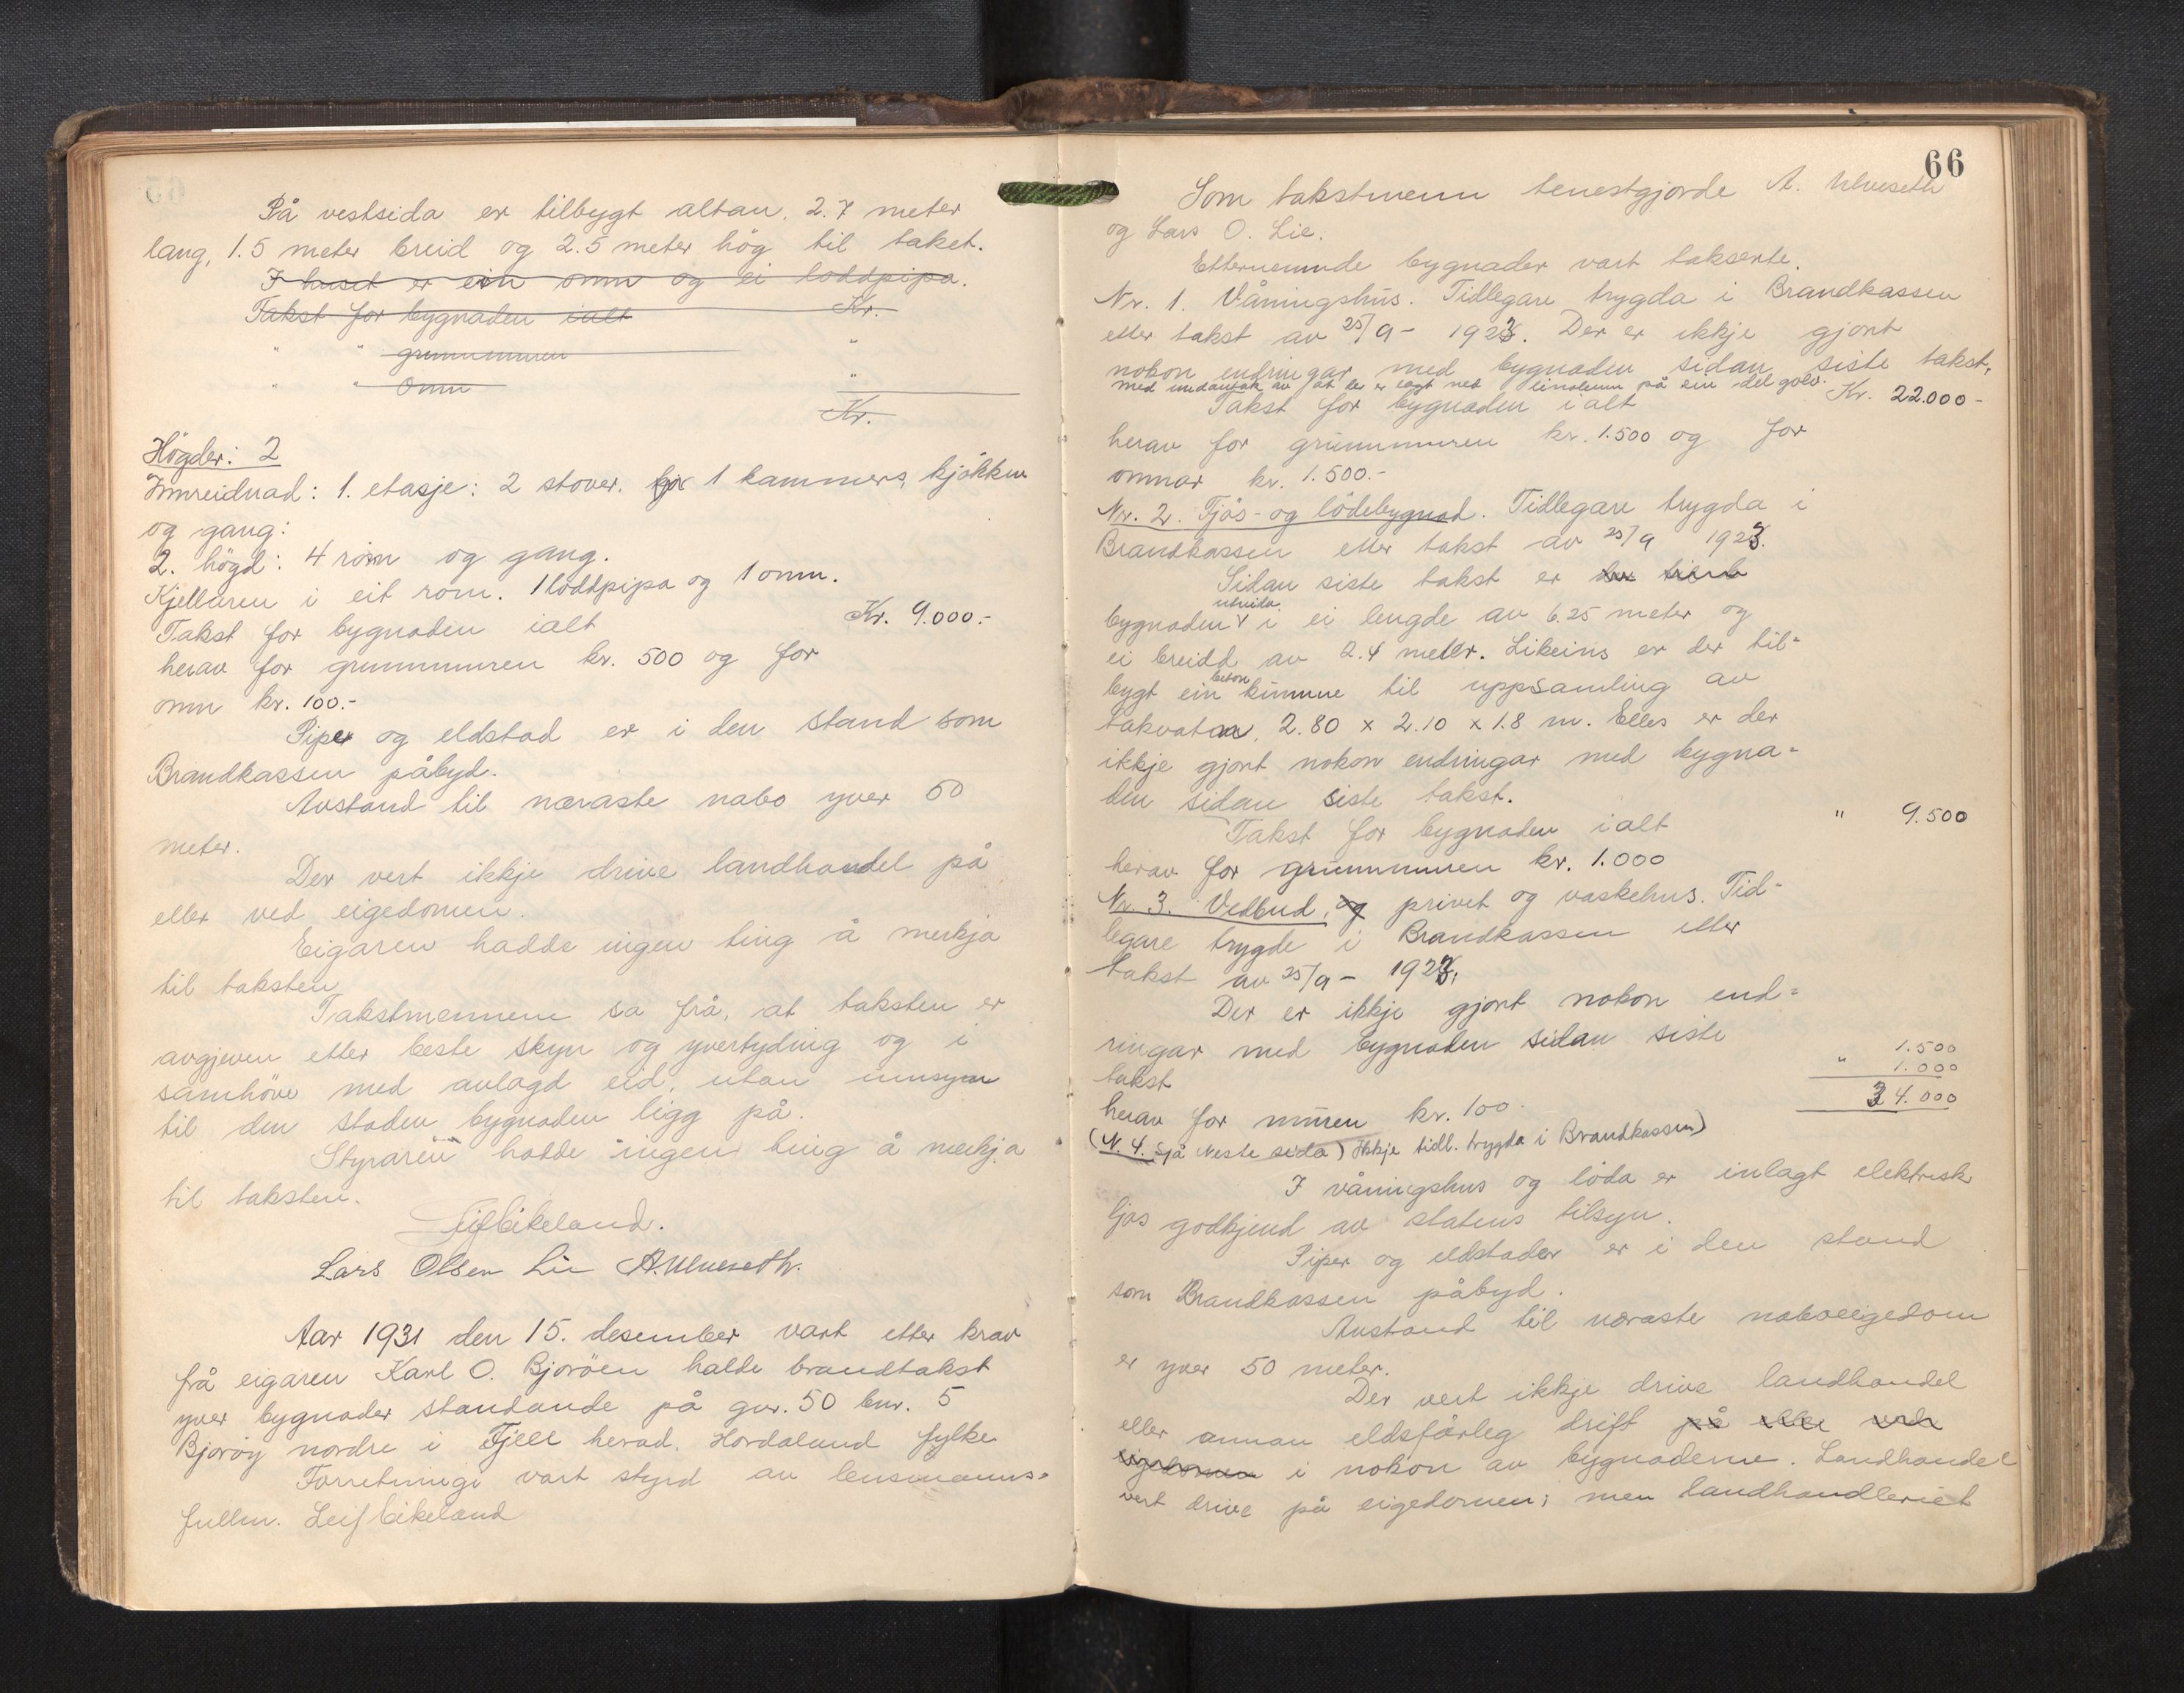 På vestsida er tilbygt altan, 2.7 meter
lang, 1.5 meter breid og 2.5 meter høg til taket.
I huset er ein omn og ei loddpipa.
Takst for bygnaden ialt Kr.-
" " grunnmuren "
" " Omn "
Kr.
Høgder: 2
Innreidnad: 1. etasje: 2 stover. 1 kammers, kjøkken
og gang:
2. høgd: 4 rom og gang.
Kjellaren i eit rom. 1 loddpipa og 1 omn.
Takst for bygnaden ialt Kr. 9.000.-
herav for grunnmuren kr. 500 og for
omn kr. 100.-
Piper og eldstad er i den stand som
Brandkassen påbyd.
Avstand til næraste nabo yver 50
meter.
Der vert ikkje drive landhandel på
eller ved eigedomen.
Eigaren hadde ingen ting å merkja
til taksten.
Takstmennene sa frå, at taksten er
avgjeven etter beste skyn og yvertyding og i
samhøve med avlagd eid, utan umsyn
til den staden bygnaden ligg på.
Styraren hadde ingen ting å merkja
til taksten.
Leif Eikeland.
Lars Olsen Lie A. Ulveseth.
Aar 1931 den 15. desember vart etter krav
frå eigaren Karl O. Bjorøen halde brandtakst
yver bygnader standande på gnr. 50 bnr. 5
Bjorøy nordre i Fjell herad, Hordaland fylke
Forretningi vart styrd av lensmanns-
fullm. Leif Eikeland
66
Som takstmenn tenestgjorde A. Ulveseth
og Lars O. Lie.
Etternemnde bygnader vart takserte.
Nr. 1. Våningshus. Tidlegare trygda i Brandkassen
etter takst av 25/9 - 1923. Der er ikkje gjort
nokon endringar med bygnaden sidan siste takst,
med undantak av at der er lagt ned linoleum på ein del golv.
Takst for bygnaden ialt Kr. 22.000-
herav for grunnmuren kr. 1.500 og for
omnar kr. 1.500.-
Nr. 2. Fjøs- og lødebygnad. Tidlegare trygda i
Brandkassen etter takst av 25/9 1923.
Sidan siste takst er der
utvida
bygnaden i ei lengde av 6.25 meter og
ei breidd av 2.4 meter. Likeins er der til-
beton
bygt ein kumme til uppsamling av
takvatn, 2.80 x 2.10 x 1.8 m. Elles er der
ikkje gjort nokon endringar med bygna-
den sidan siste takst.
Takst for bygnaden ialt " 9.500
herav for grunnmuren kr. 1.000
Nr. 3. Vedbud, og privet og vaskehus. Tid-
legare trygde i Brandkassen etter
takst av 25/9 - 1923.
Der er ikkje gjort nokon end-
ringar med bygnaden sidan siste
takst " 1.500
1.000
34.000
herav for muren kr. 100.
(N. 4. Sjå Neste sida) Ikkje tidl. trygda i Brandkassen)
I våningshus og løda er inlagt elektrisk
ljos godkjend av statens tilsyn.
Piper og eldstader er i den stand
som Brandkassen påbyd.
Avstand til næraste naboeigedom
er yver 50 meter.
Der vert ikkje drive landhandel
eller annan eldsfårleg drift på eller ved
eigedomen i nokon av bygnaderne. Landhandel
vert drive på eigedomen; men landhandleriet